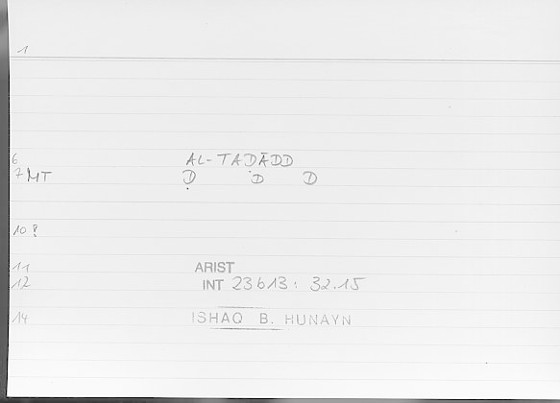 1
6 AL-TAḌĀDD
7 MT Ḍ D D
10 ?
11 ARIST
12 INT 23613: 32.15
14 ISHAQ B. HUNAYN